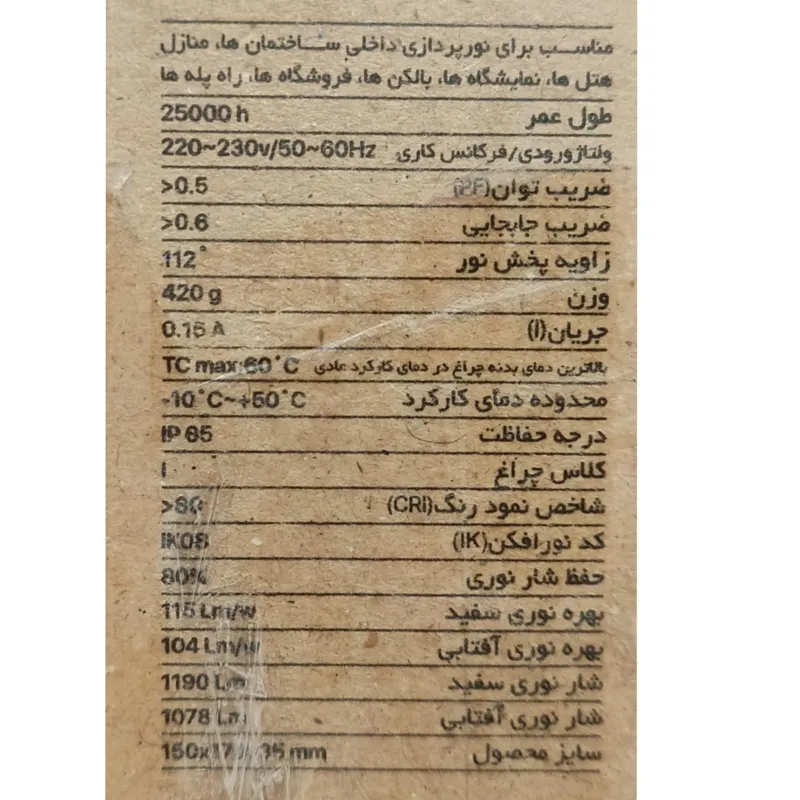 مناسب برای نورپردازی داخلی ساختمان ها، منازل
هتل ها، نمایشگاه ها، بالکن ها، فروشگاه ها، راه پله ها
طول عمر 25000 h
ولتاژورودی/فرکانس کاری 220~230v/50~60Hz
ضریب توان(PF) >0.5
ضریب جابجایی >0.6
زاویه پخش نور 112°
وزن 420 g
جریان(I) 0.15 A
بالاترین دمای بدنه چراغ در دمای کارکرد عادی TC max:60°C
محدوده دمای کارکرد -10°C~+50°C
درجه حفاظت IP 65
کلاس چراغ I
شاخص نمود رنگ(CRI) >80
کد نورافکن(IK) IK08
حفظ شار نوری 80%
بهره نوری سفید 115 Lm/w
بهره نوری آفتابی 104 Lm/w
شار نوری سفید 1190 Lm
شار نوری آفتابی 1078 Lm
سایز محصول mm